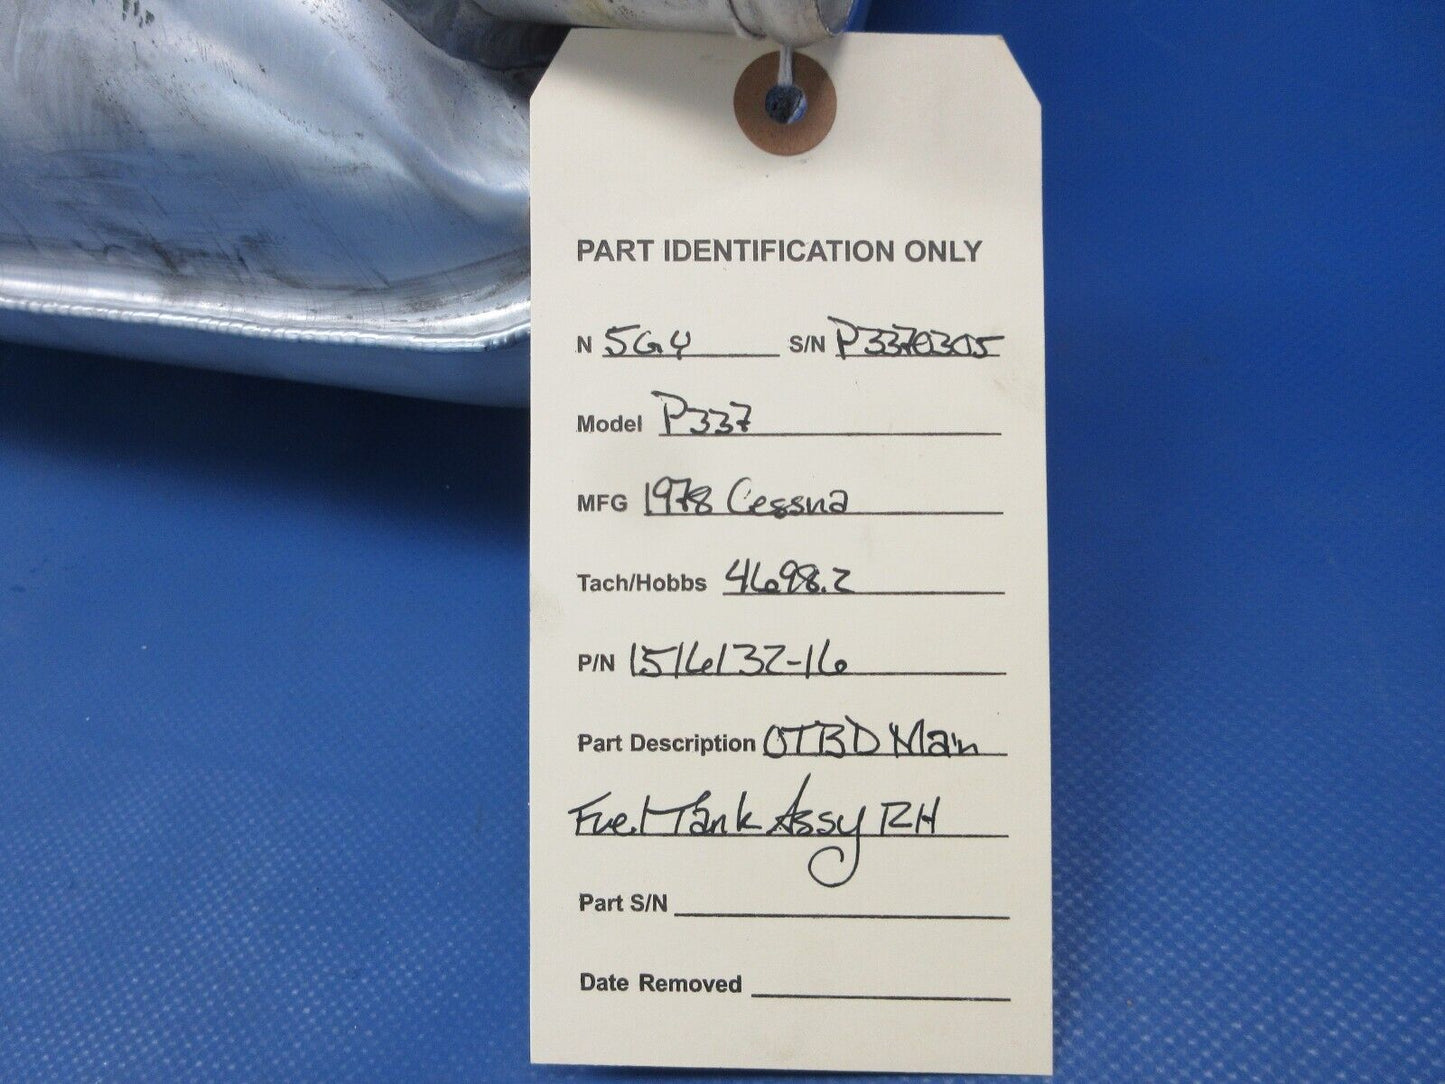 PART IDENTIFICATION ONLY
N 5GY S/N P3370305
Model P337
MFG 1978 Cessna
Tach/Hobbs 4698.2
P/N 1516132-16
Part Description OTBD Main
Fuel Tank Assy RH
Part S/N
Date Removed